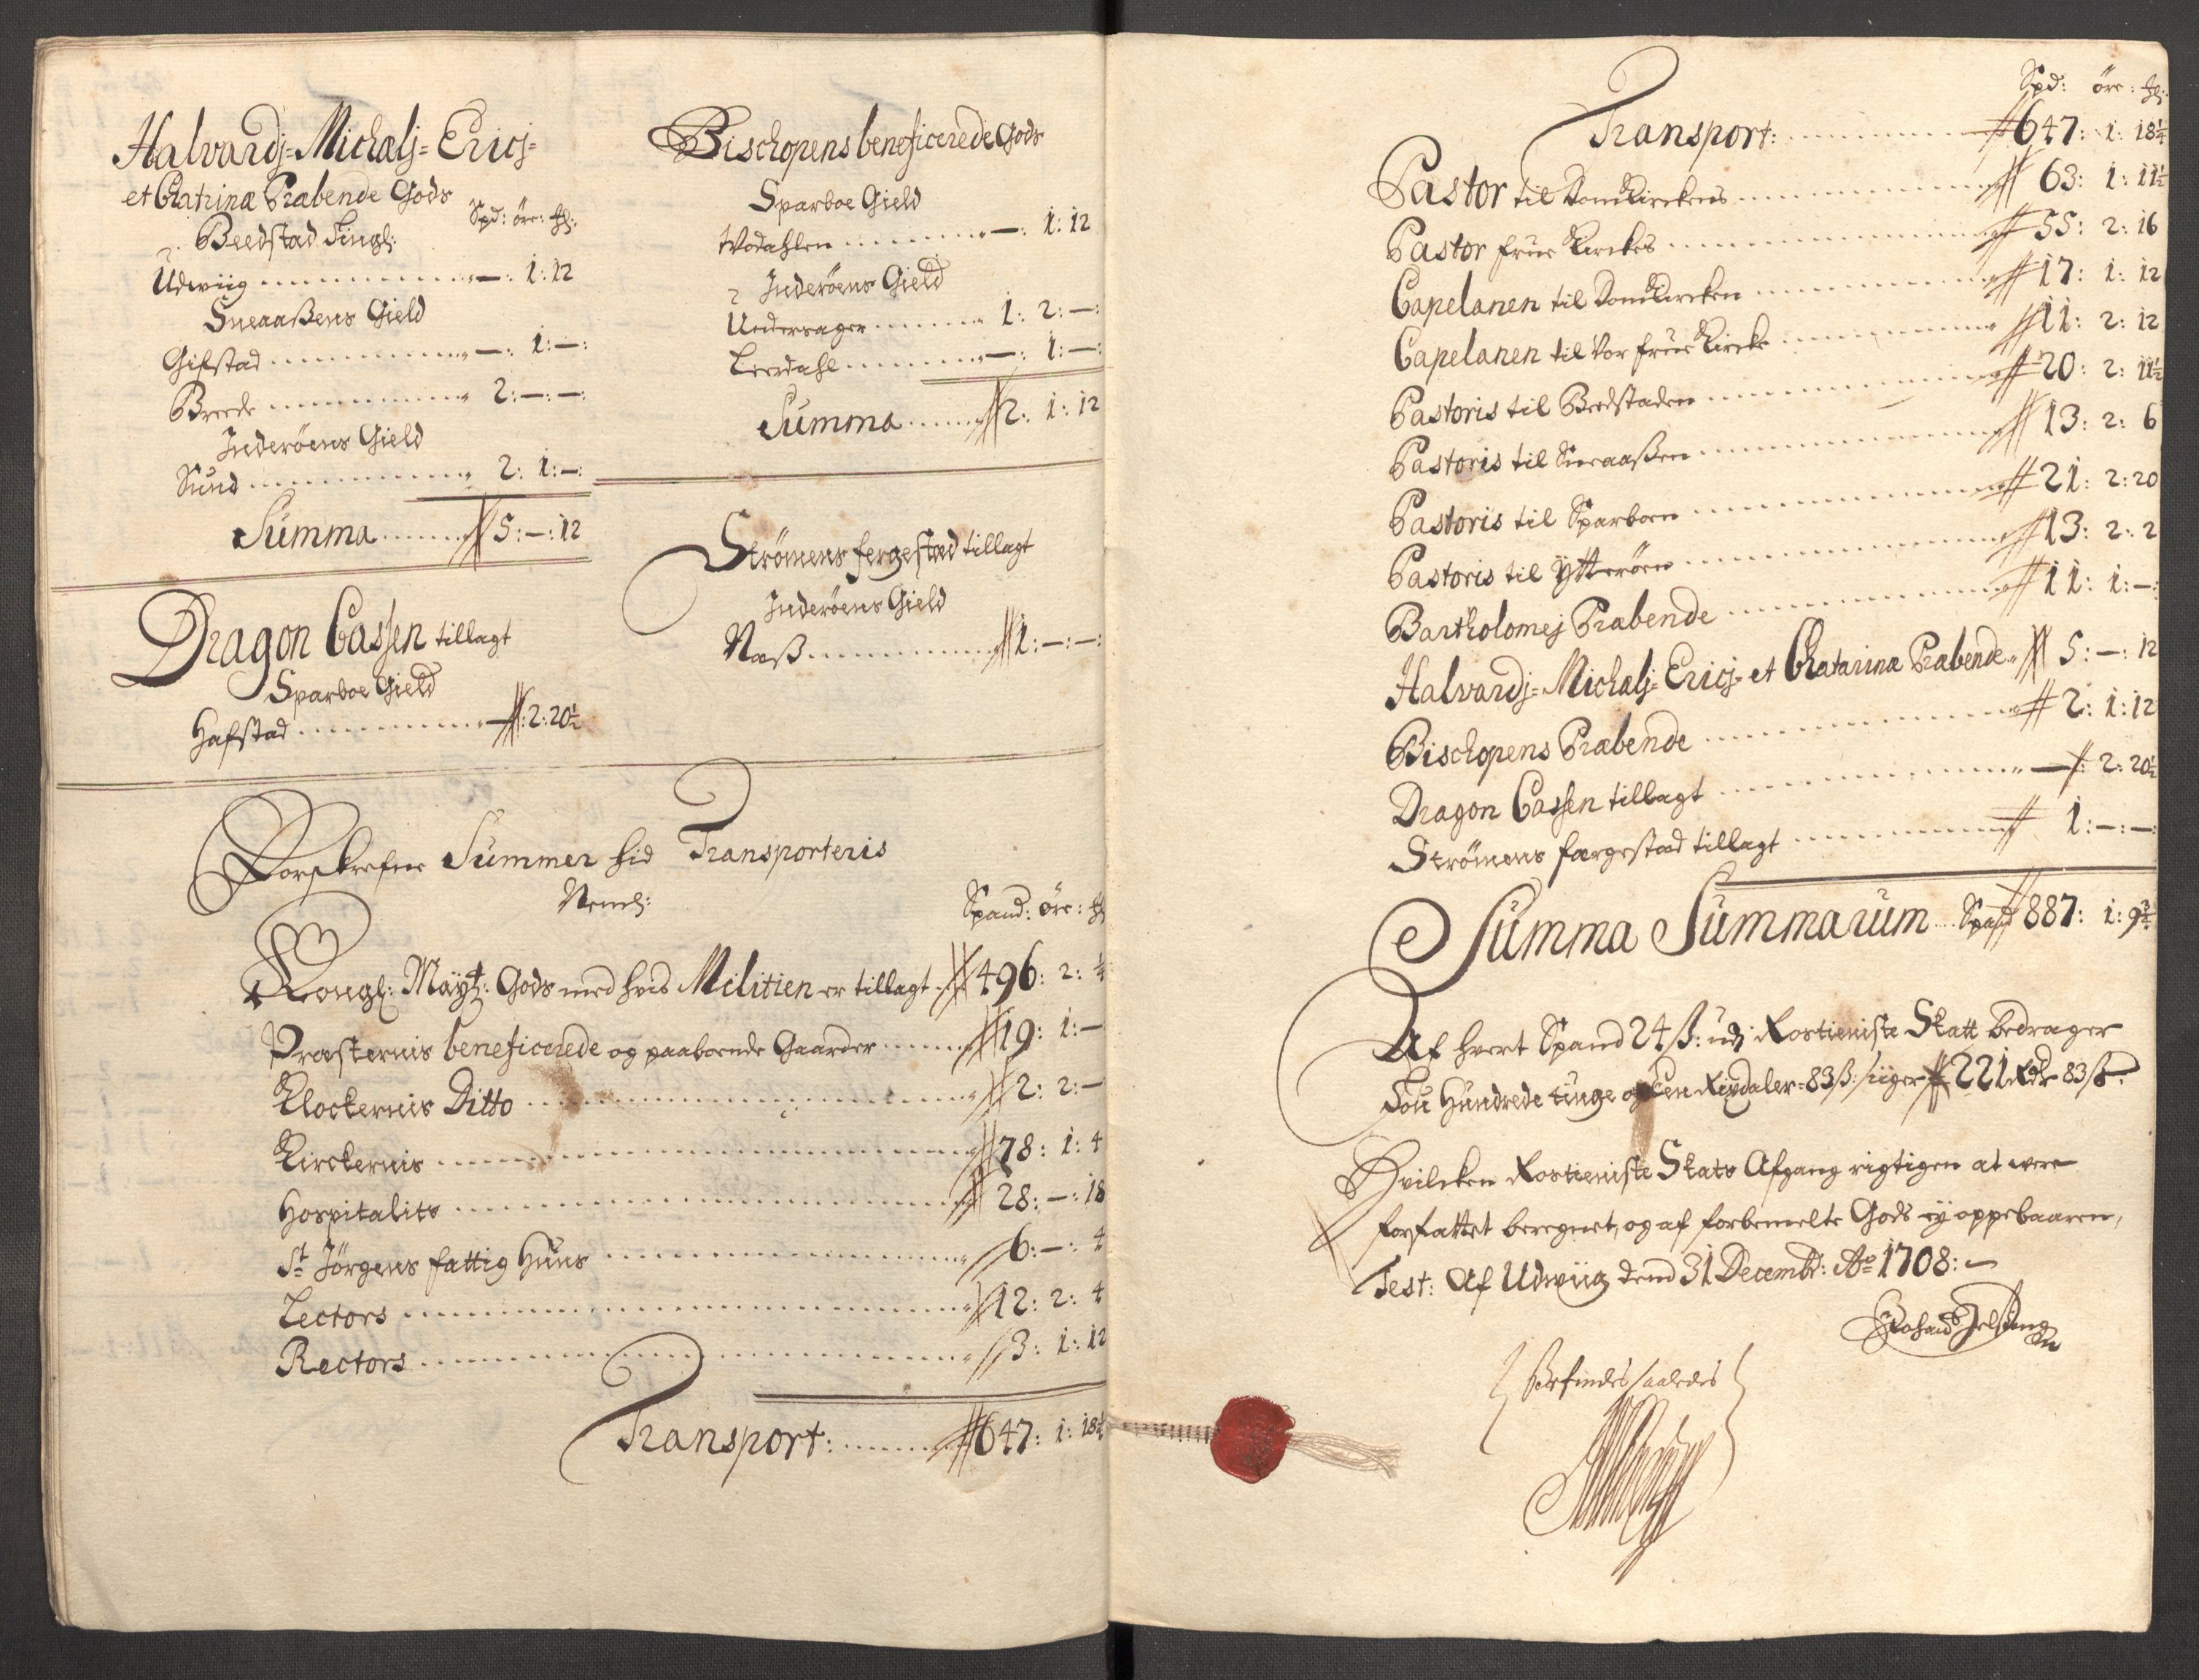 Halvardj=Michælj=Ericj=
et Chatrinæ Præbende Gods
Spd: öre: 
Beedstad Tingl:
Udwiig —: 1: 12
Sneaaßens Gield
Gifstad —: 1: —:
Breede 2: —: —:
Inderöens Gield
Sund 2: 1: —:
Summa 5: —: 12
Dragon Cassen tillagt
Sparboe Gield
Hafstad —: 2: 20½
Bischopens beneficerede Gods
Sparboe Gield
Wodahlen —: 1: 12
Inderöens Gield
Undersager 1: 2: —:
Leerdahl —: 1: —:
Summa 2: 1: 12
Strömens fergestæd tillagt
Inderöens Gield
Næß 1: —: —:
Forskrefne Summer hid Transporteris
Neml:
Spand: öre: 
Kongl: Mayt: Gods med hvis Militien er tillagt 496: 2: ¼
Præsternis beneficerede og paaboende Gaarder 19: 1: —
Klockernis Ditto 2: 2: —
Kirckernis 78: 1: 4
Hospitalits 28: —: 18
St Jörgens fattig Huus 6: —: 4
Lectors 12: 2: 4
Rectors 3: 1: 12
Transport: 647: 1: 18¼
Spd: öre: 
Transport: 647: 1: 18¼
Pastor til Domkirckens 63: 1: 11½
Pastor frue Kirckes 55: 2: 16
Capelanen til Domkircken 17: 1: 12
Capelanen til Vor frue Kircke 11: 2: 12
Pastoris til Beedstaden 20: 2: 11½
Pastoris til Sneaaßen 13: 2: 6
Pastoris til Sparboen 21: 2: 20
Pastoris til Ytteröen 13: 2: 2
Bartholomej Præbende 11: 1: —:
Halvardj=Michælj=Ericj= et Chatarinæ Præbende 5: —: 12
Bischopens Præbende 2: 1: 12
Dragon Cassen tillagt —: 2: 20½
Strömens færgestad tillagt 1: —: —:
Summa Summarum Spand 887: 1: 9¾
Af hvert Spand 24 ß: udj Rostieniste Skatt bedrager
Tou Hundrede tiuge og Een Rixdaler 83 ß: siiger 221 Rdr 83 ß.
Hvilcken Rostieniste Skats Afgang rigtigen at were
forfattet beregnet, og af forbemelte Gods ej oppebaaren,
Test: Af Udwiig dend 31 Decembr: Ao 1708: —
Befindes saaledes